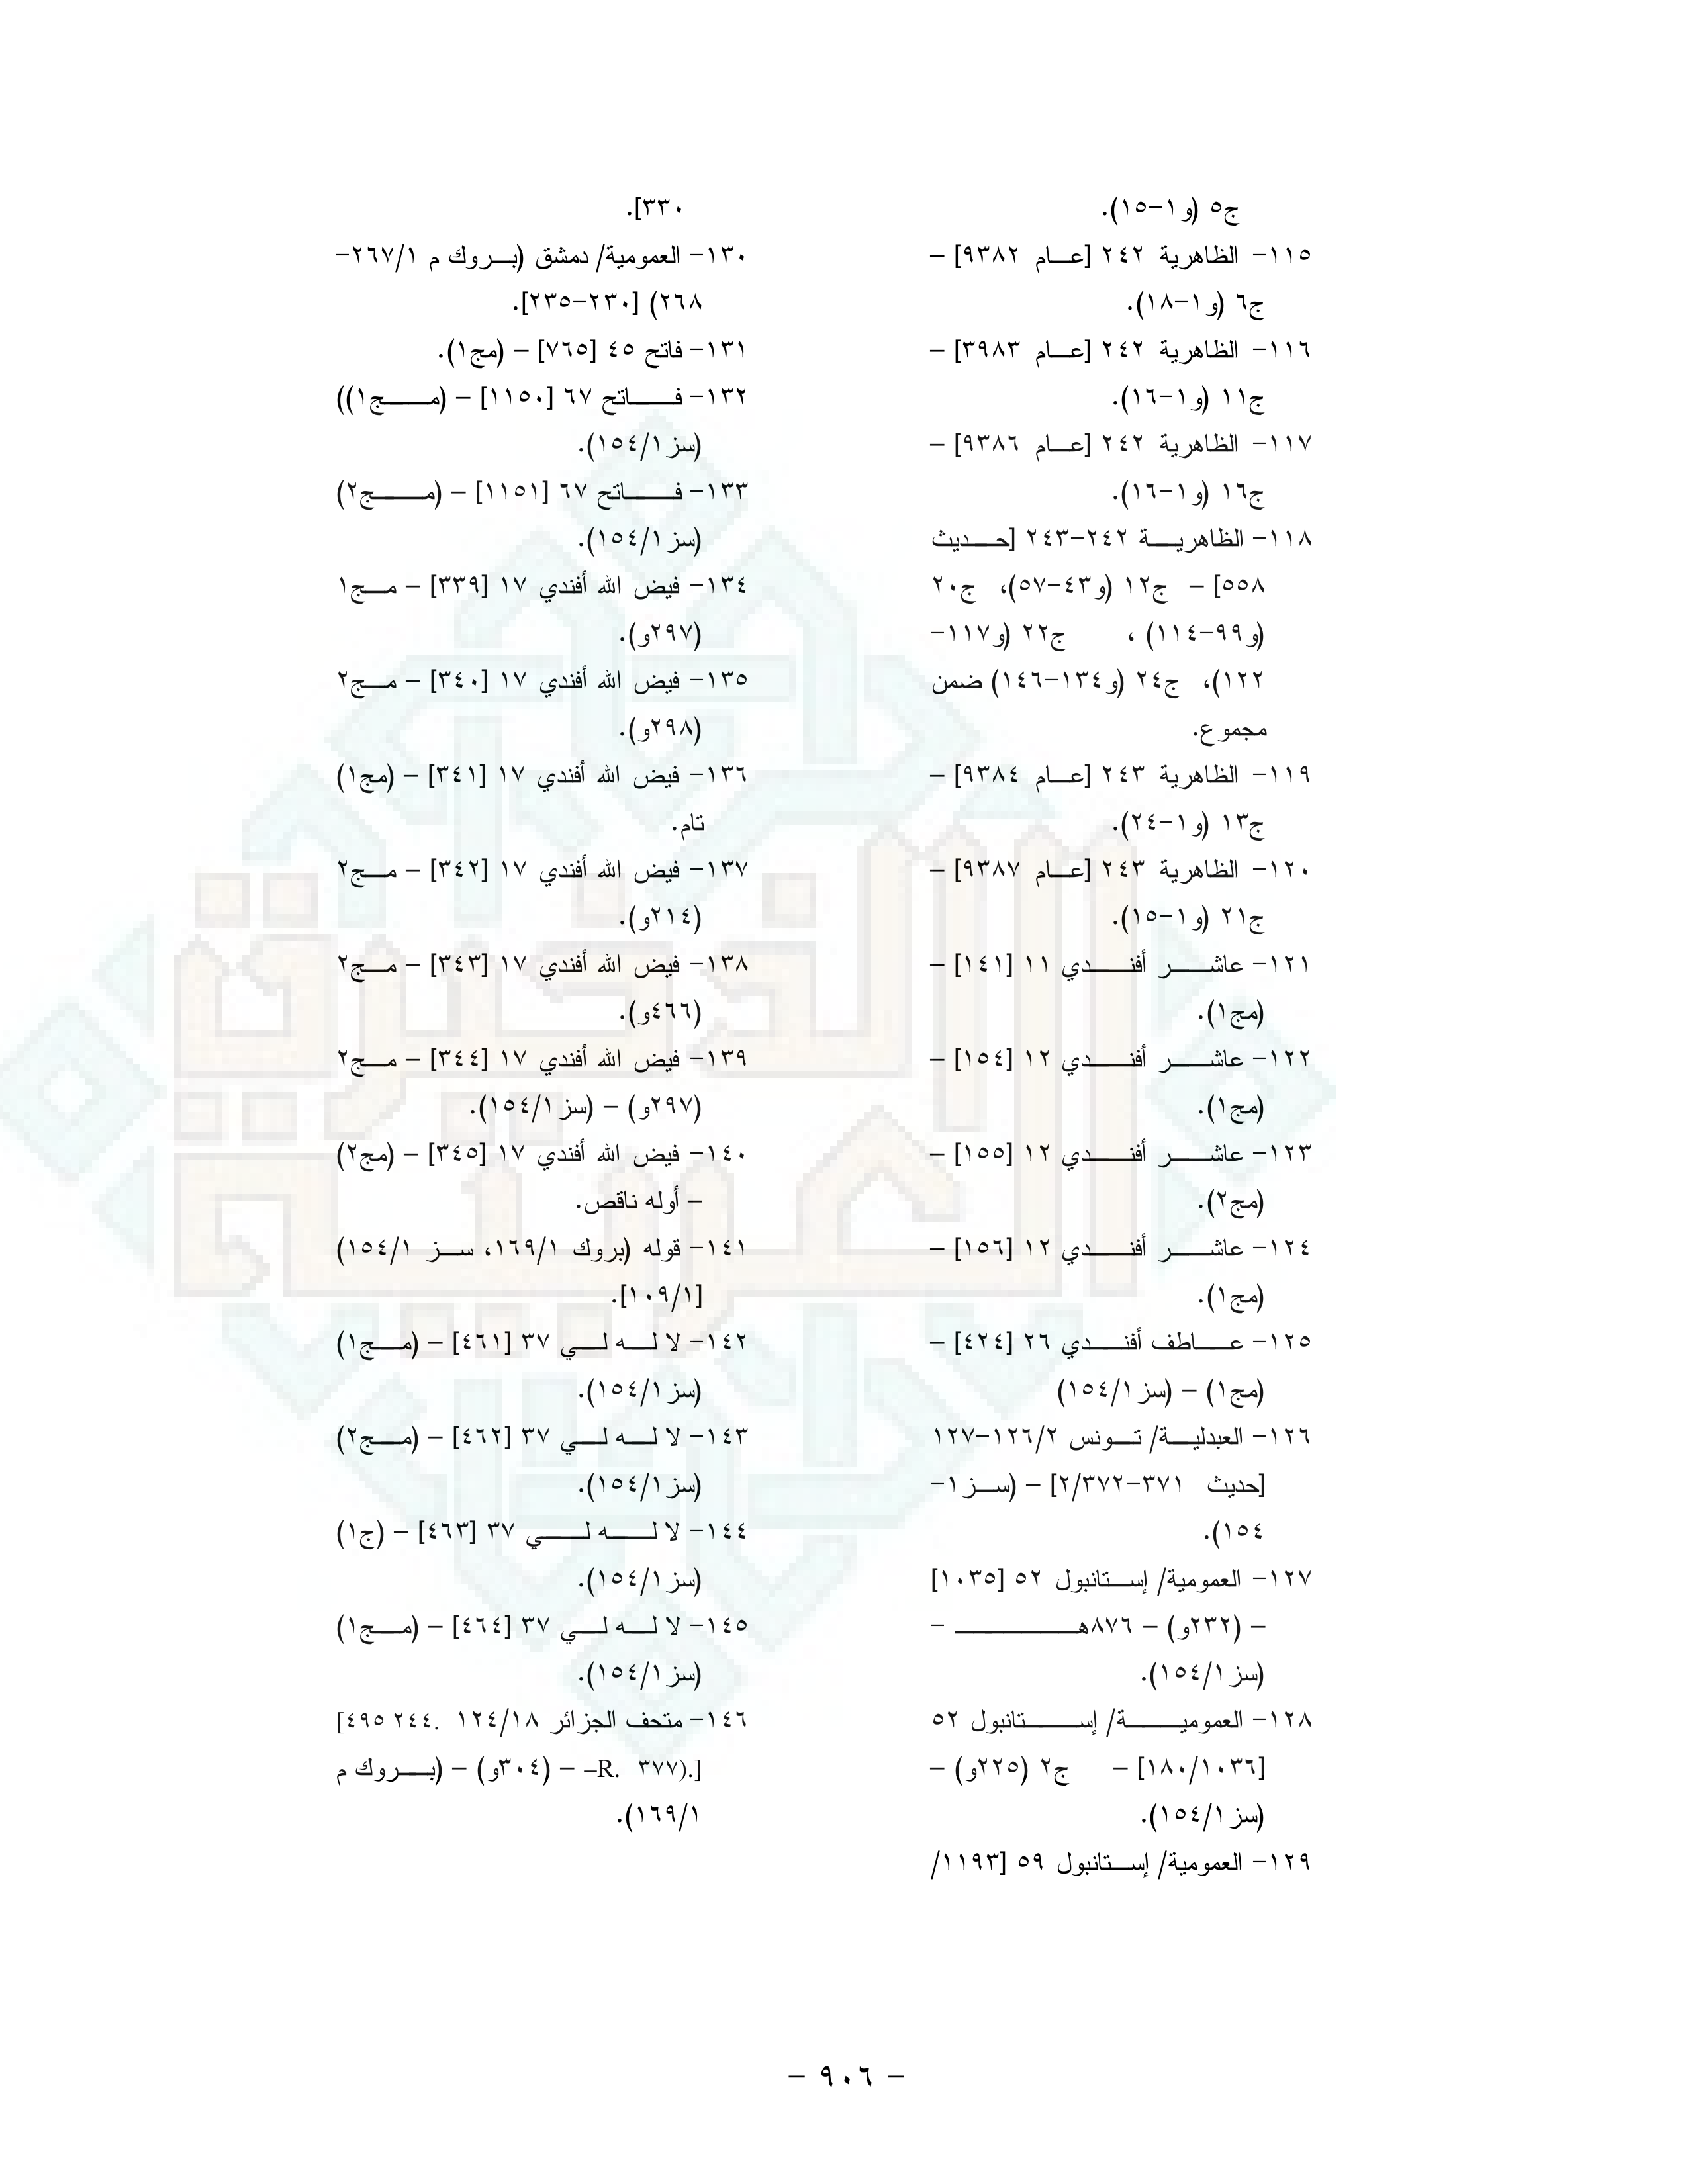 ج٥ (و١-١٥).
١١٥- الظاهرية ٢٤٢ [عام ٩٣٨٢] –
ج٦ (و١-١٨).
١١٦- الظاهرية ٢٤٢ [عام ٣٩٨٣] –
ج١١ (و١-١٦).
١١٧- الظاهرية ٢٤٢ [عام ٩٣٨٦] –
ج١٦ (و١-١٦).
١١٨- الظاهرية ٢٤٢-٢٤٣ [حديث
٥٥٨] – ج١٢ (و٤٣-٥٧)، ج٢٠
(و٩٩-١١٤) ، ج٢٢ (و١١٧-
١٢٢)، ج٢٤ (و١٣٤-١٤٦) ضمن
مجموع.
١١٩- الظاهرية ٢٤٣ [عام ٩٣٨٤] –
ج١٣ (و١-٢٤).
١٢٠- الظاهرية ٢٤٣ [عام ٩٣٨٧] –
ج٢١ (و١-١٥).
١٢١- عاشر أفندي ١١ [١٤١] –
(مج١).
١٢٢- عاشر أفندي ١٢ [١٥٤] –
(مج١).
١٢٣- عاشر أفندي ١٢ [١٥٥] –
(مج٢).
١٢٤- عاشر أفندي ١٢ [١٥٦] –
(مج١).
١٢٥- عاطف أفندي ٢٦ [٤٢٤] –
(مج١) – (سز١/١٥٤)
١٢٦- العبدلية/ تونس ١٢٦/٢-١٢٧
[حديث ٣٧١-٢/٣٧٢] – (سز١-
١٥٤).
١٢٧- العمومية/ إستانبول ٥٢ [١٠٣٥]
– (٢٣٢و) – ٨٧٦هـ -
(سز١/١٥٤).
١٢٨- العمومية/ إستانبول ٥٢
[١٨٠/١٠٣٦] – ج٢ (٢٢٥و) –
(سز١/١٥٤).
١٢٩- العمومية/ إستانبول ٥٩ [١١٩٣/
٣٣٠].
١٣٠- العمومية/ دمشق (بروك م ٢٦٧/١-
٢٦٨) [٢٣٠-٢٣٥].
١٣١- فاتح ٤٥ [٧٦٥] – (مج١).
١٣٢- فاتح ٦٧ [١١٥٠] – (مج١))
(سز١/١٥٤).
١٣٣- فاتح ٦٧ [١١٥١] – (مج٢)
(سز١/١٥٤).
١٣٤- فيض الله أفندي ١٧ [٣٣٩] – مج١
(٢٩٧و).
١٣٥- فيض الله أفندي ١٧ [٣٤٠] – مج٢
(٢٩٨و).
١٣٦- فيض الله أفندي ١٧ [٣٤١] – (مج١)
تام.
١٣٧- فيض الله أفندي ١٧ [٣٤٢] – مج٢
(٢١٤و).
١٣٨- فيض الله أفندي ١٧ [٣٤٣] – مج٢
(٤٦٦و).
١٣٩- فيض الله أفندي ١٧ [٣٤٤] – مج٢
(٢٩٧و) – (سز١/١٥٤).
١٤٠- فيض الله أفندي ١٧ [٣٤٥] – (مج٢)
– أوله ناقص.
١٤١- قوله (بروك ١٦٩/١، سز ١٥٤/١)
[١٠٩/١].
١٤٢- لا له لي ٣٧ [٤٦١] – (مج١)
(سز١/١٥٤).
١٤٣- لا له لي ٣٧ [٤٦٢] – (مج٢)
(سز١/١٥٤).
١٤٤- لا له لي ٣٧ [٤٦٣] – (ج١)
(سز١/١٥٤).
١٤٥- لا له لي ٣٧ [٤٦٤] – (مج١)
(سز١/١٥٤).
١٤٦- متحف الجزائر ١٢٤/١٨ .٢٤٤ ٤٩٥]
[.(٣٧٧ .R– – (٣٠٤و) – (بروك م
١٦٩/١).
– ٩٠٦ –
الذخيرة
العربية